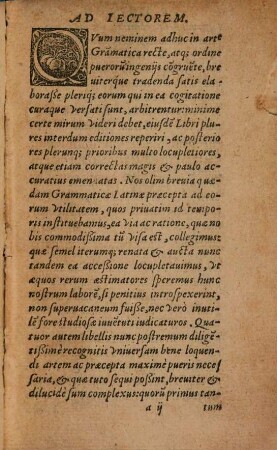 AD LECTOREM.
QVum neminem adhuc in arte
Grãmatica recte, atq; ordine
puerorũ ingenijs cõgruẽte, bre
uiterque tradenda satis elaborasse
pleriq; eorum qui in ea cogitatione
curaque versati sunt, arbitrentur: minime
certe mirum videri debet, eiusdẽ Libri plures
interdum editiones reperiri, ac posteriores
plerunq; prioribus multo locupletiores,
atque etiam correctas magis & paulo accuratius
emendatas. Nos olim breuia quædam
Grammaticæ Latinæ præcepta ad eorum
vtilitatem, quos priuatim id temporis
instituebamus, ea via ac ratione, quæ nobis
commodissima tũ visa est, collegimus:
quæ semel iterumq; renata & aucta nunc
tandem ea accessione locupletauimus, vt
æquos rerum æstimatores speremus hunc
nostrum laborẽ, si penitius introspexerint,
non superuacaneum fuisse, nec vero inutilẽ
fore studiosæ iuuẽtuti iudicaturos. Quatuor
autem libellis nunc postremum diligẽtissimè
recognitis vniuersam bene loquendi
artem ac præcepta maximè pueris necessaria,
& quæ tuto sequi possint, breuiter &
dilucidè sum complexus: quorũ primus tan-
a ij tum